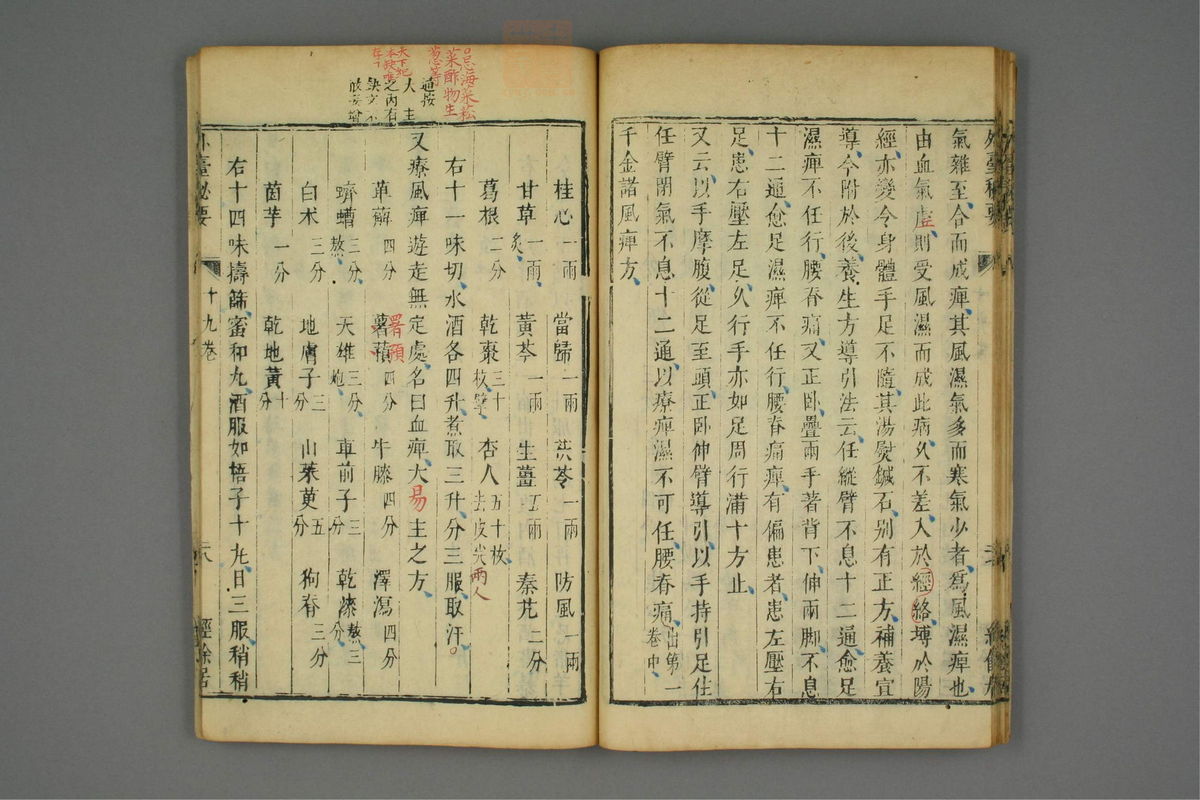 氣雜至合而成痺其風濕氣多而寒氣少者爲風濕痺也
由血氣虛則受風濕而成此病久不差入於經絡搏於陽
經亦變令身體手足不隨其湯熨鍼石別有正方補養宜
導今附於後養生方導引法云任縱臂不息十二通愈足
濕痺不任行腰脊痛又正臥疊兩手著背下伸兩脚不息
十二通愈足濕痺不任行腰脊痛痺有偏患者患左壓右
足患右壓左足久行手亦如足周行滿十方止
又云以手摩腹從足至頭正臥伸臂導引以手持引足住
任臂閉氣不息十二通以療痺濕不可任腰脊痛出第一卷中
千金諸風痺方
忌海菜菘
菜酢物生
葱等
桂心一兩 當歸一兩 茯苓一兩 防風一兩
甘草一兩炙 黃芩一兩 生薑五兩 秦艽二分
葛根二分 乾棗三十枚擘 杏人五十枚去皮尖兩人
右十一味切水酒各四升煮取三升分三服取汗
又療風痺遊走無定處名曰血痺大易主之方
萆薢四分 薯蕷四分 牛膝四分 澤瀉四分
薯蕷
蠐螬三分熬 天雄三分炮 車前子三分 乾漆熬三分
白朮三分 地膚子三分 山茱萸五分 狗脊三分
茵芋一分 乾地黃十分
右十四味擣篩蜜和丸酒服如梧子十丸日三服稍稍
外臺秘要 十九卷 經餘居